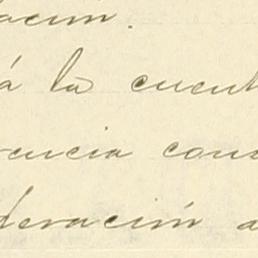 acion.
á la cuent
encia cons
deración a